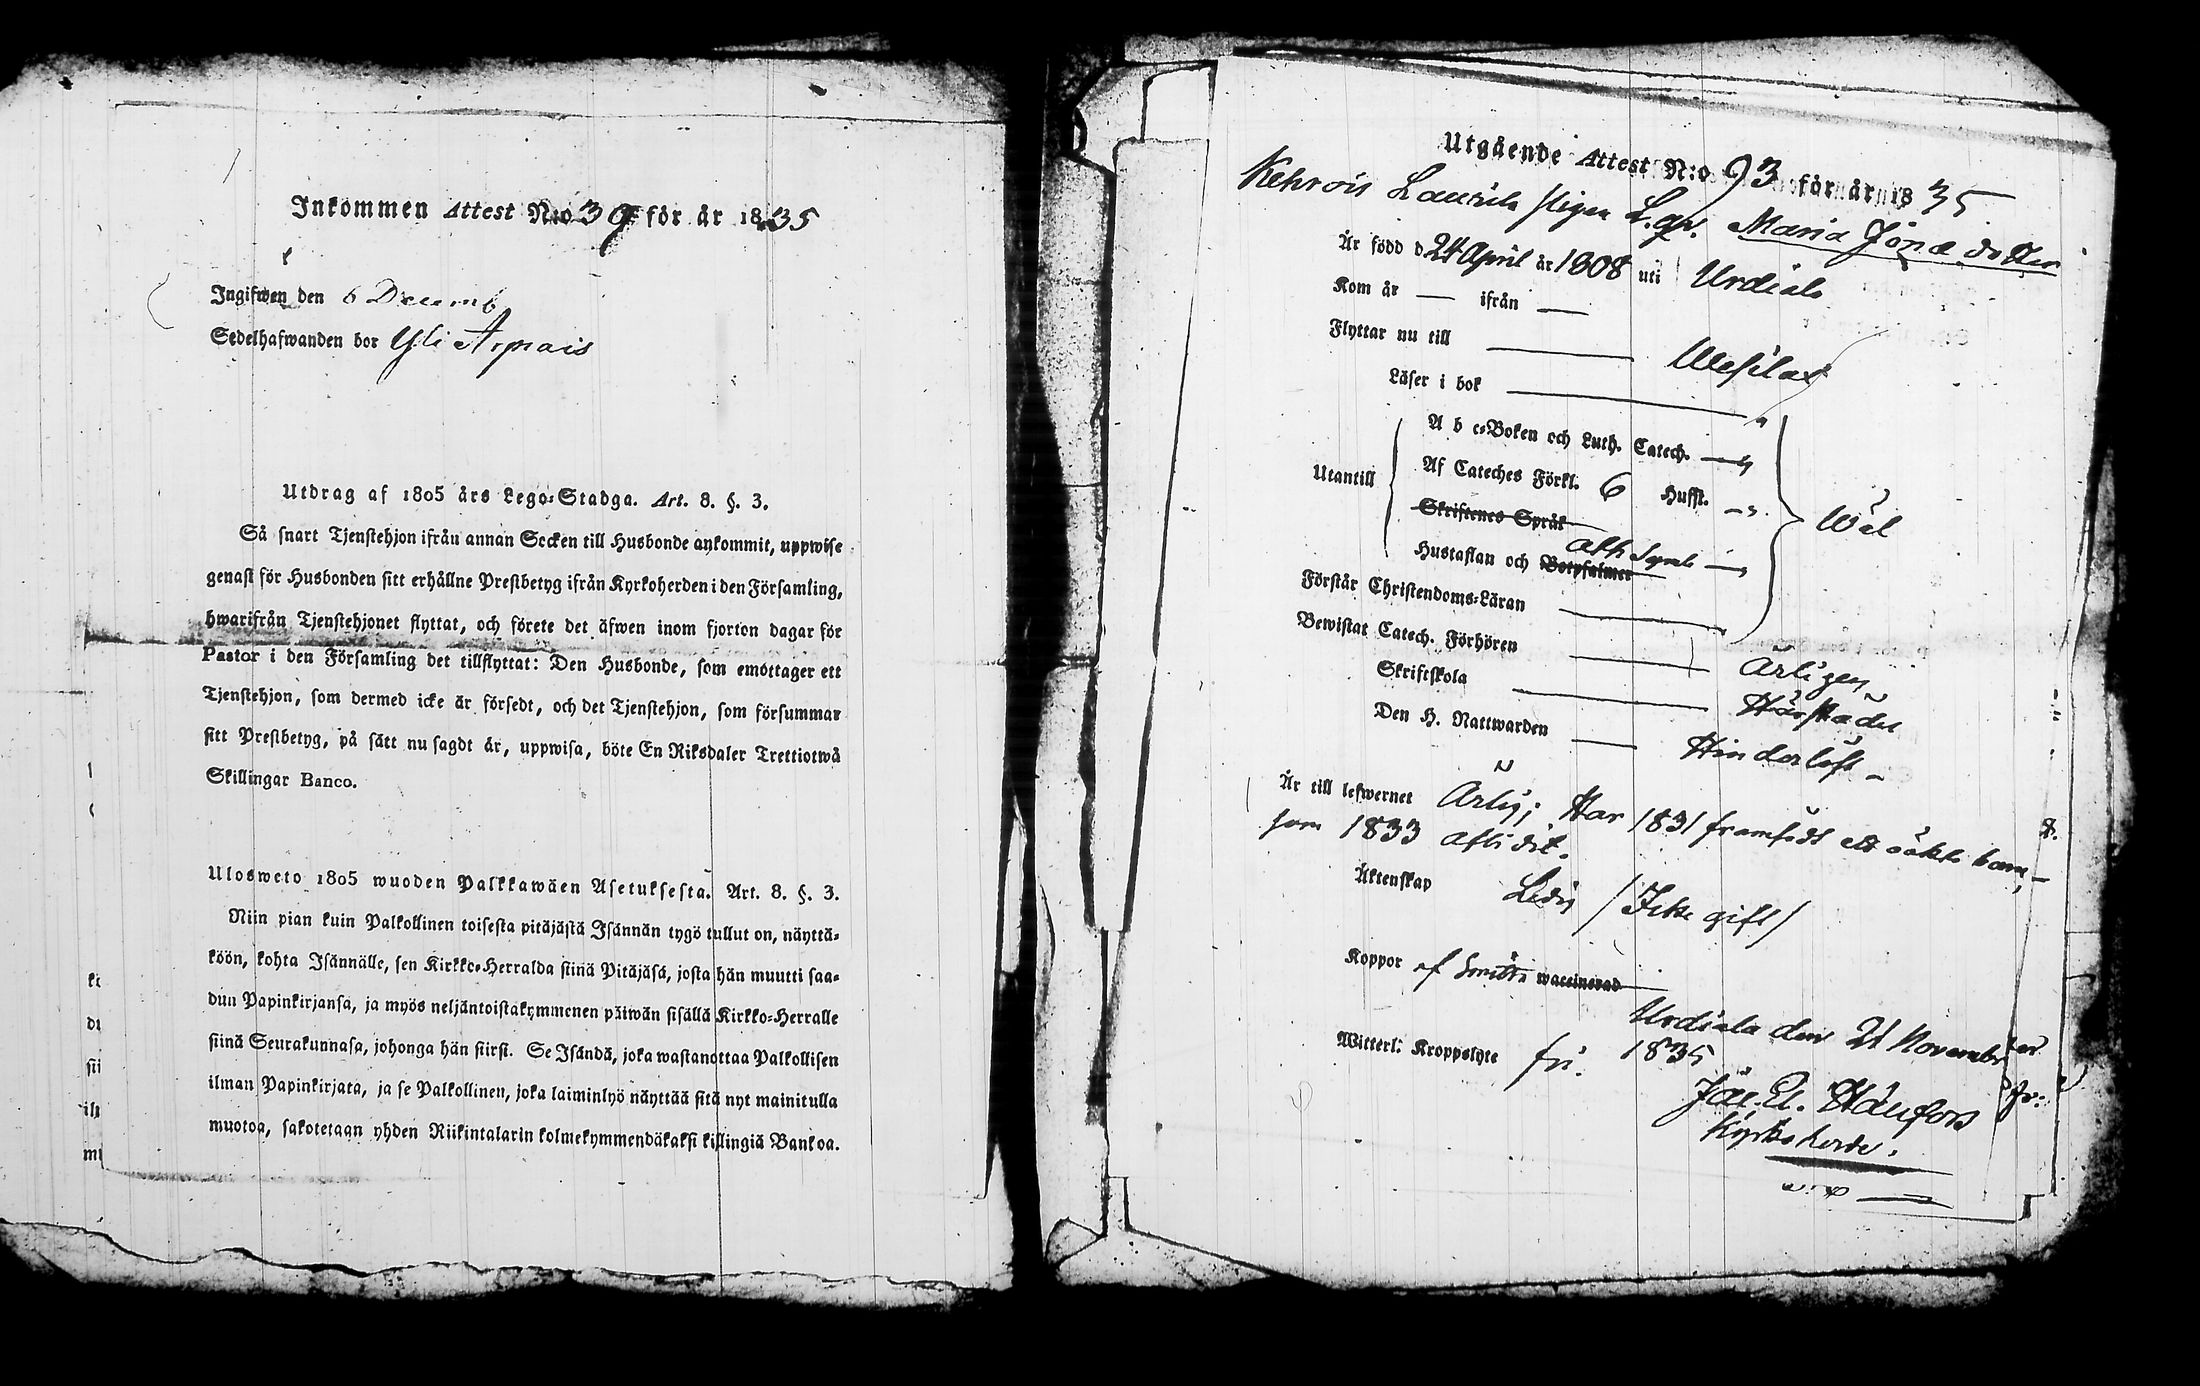 Inkommen Attest N:o 39 för år 1835
Ingifwen den 6 Decemb
Sedelhafwanden bor Yli Arpais
Utdrag af 1805 års Lego-Stadga. Art. 8. §. 3.
Så snart Tjenstehjon ifrån annan Socken till Husbonde ankommit, uppwise
genast för Husbonden sitt erhållne Prestbetyg ifrån Kyrkoherden i den Församling,
hwarifrån Tjenstehjonet flyttat, och förete det äfwen inom fjorton dagar för
Pastor i den Församling det tillflyttat: Den Husbonde, som emottager ett
Tjenstehjon, som dermed icke är försedt, och det Tjenstehjon, som försummar
sitt Prestbetyg, på sätt nu sagdt är, uppwisa, böte En Riksdaler Trettiotwå
Skillingar Banco.
Ulosweto 1805 wuoden Palkkawäen Asetuksesta. Art. 8. §. 3.
Niin pian kuin Palkollinen toisesta pitäjästä Isännän tygö tullut on, näyttä-
köön, kohta Isännälle, sen Kirkko-Herralda siinä Pitäjäsä, josta hän muutti saa-
dun Papinkirjansa, ja myös neljäntoistakymmenen päiwän sisällä Kirkko-Herralle
siinä Seurakunnasa, johonga hän siirsi. Se Isändä, joka wastanottaa Palkollisen
ilman Papinkirjata, ja se Palkollinen, joka laiminlyö näyttää sitä nyt mainitulla
muotoa, sakotetaan yhden Riikintalarin kolmekymmendäkaksi killingiä Bankoa.
Utgående Attest N:o 93 för år 1835
Kehrois Laurila Pigan Maria Jonae dotter
Är född d 24 April år 1808 uti Urdiala
Kom år — ifrån —
Flyttar nu till Wesilax
Läser i bok
A b c-Boken och Luth. Catech.
Utantill Af Cateches Förkl. 6 Hufst. Wäl
Skriftenes Språk
Ath Symb
Hustaflan och Botpsalmer
Förstår Christendoms-Läran
Bewistat Catech. Förhören Årligen
Skriftskola Härstädes
Den H. Nattwarden Hinderlöst
Är till lefwernet Ärlig; Har 1831 framfödt ett oäkta barn,
som 1833 aflidit.
Äktenskap Ledig /Icke gift/
Koppor af Smitta waccinerad
Urdiala den 21 November
Witterl: Kroppslyte fri. 1835
Kyrkoherde.